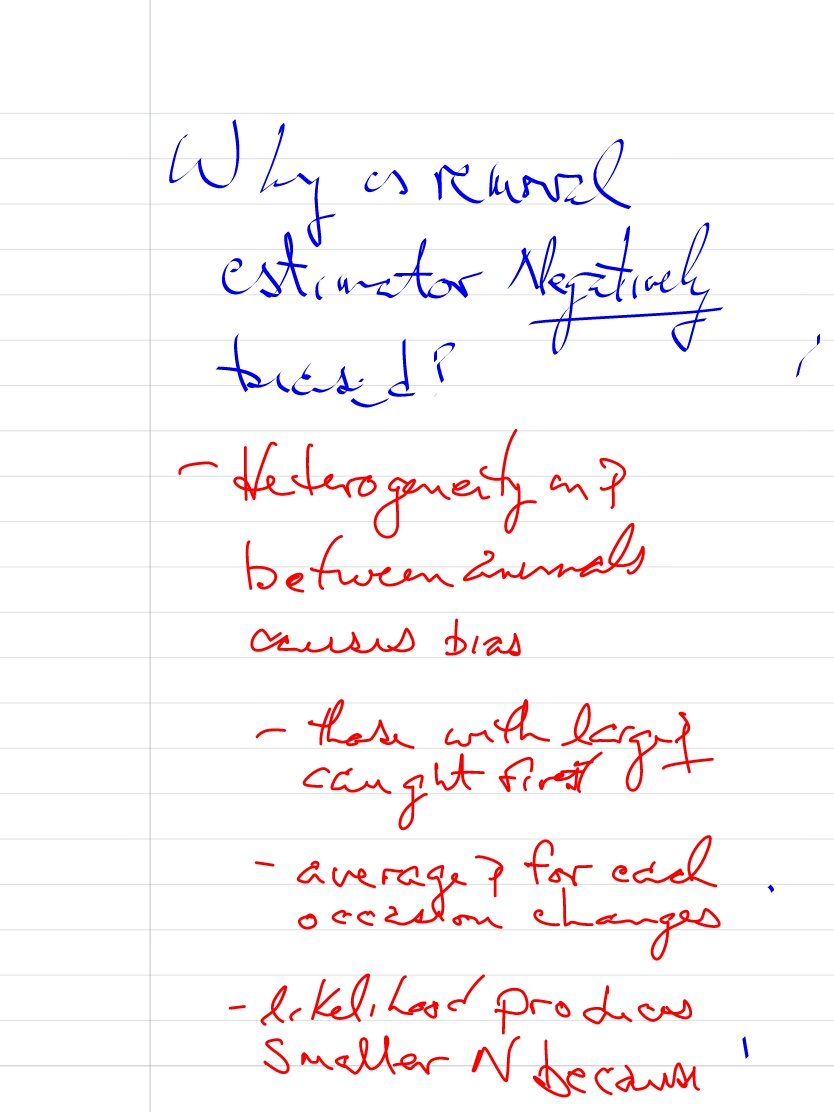 Why is removal
estimator Negatively
biased?
- Heterogeneity in p
between animals
causes bias
- those with large p
caught first
- average p for each
occasion changes
- likelihood produces
smaller N because